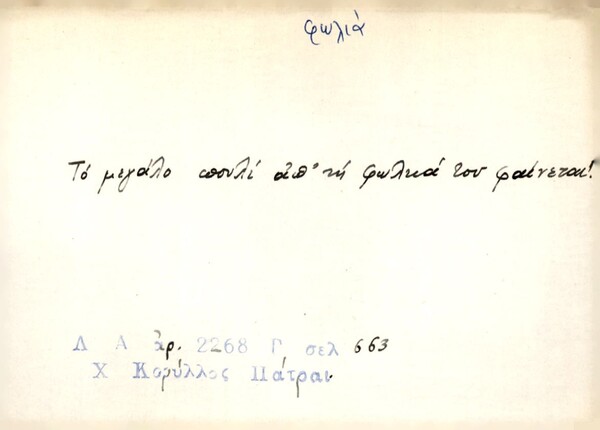 φωλιά
Τό μεγάλο πουλί ἀπ' τή φωλιά του φαίνεται!
Λ Α ἀρ. 2268 Γ σελ 663
Χ Κορύλλος Πάτραι